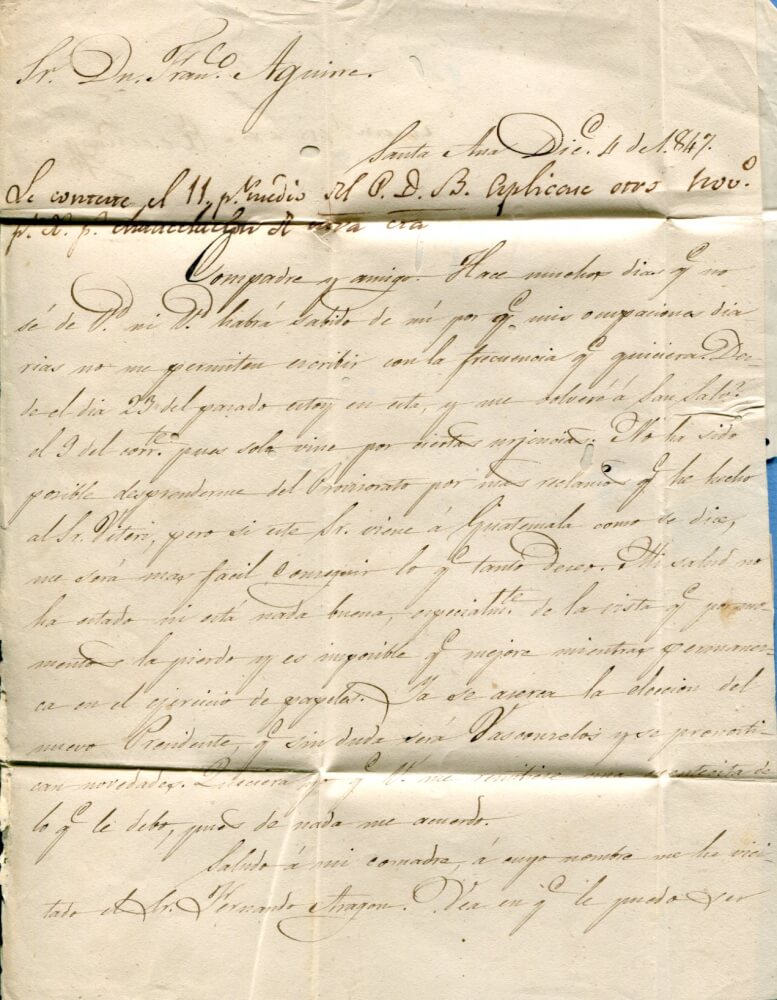 Sr. Dn. Franco. Aguirre.
Santa Ana Dice. 4 de 1847.
Se contexte el 11. pr. medio del P. D. B. Aplicase otro Novo.
pr.
Compadre y amigo. Hace muchos dias qe. no
sé de V. ni V. habrá sabido de mi por qe. mis ocupaciones dia
rias no me permiten escribir con la frecuencia qe. quiciera. Des-
de el dia 23 del pasado estoy en esta, y me volveré á San Salvr.
el 9 del corrte. pues solo vine por ciertas urjencias. No ha sido
posible desprenderme del Provisorato por mas reclamos qe. he hecho
al Sr. Viteri, pero si este Sr. viene á Guatemala como se dice,
me será mas facil conseguir lo qe. tanto deseo. Mi salud no
ha estado ni está nada buena, especialmte. de la vista qe. por mo-
mentos la pierdo y es imposible qe. mejore mientras permanes-
ca en el ejercicio de papeles. Ya se acerca la eleccion del
nuevo Presidente, qe. sin duda será Vasconcelos y se pronosti-
can novedades. Quiciera yo qe. V. me remitiese una cuentecita de
lo qe. le debo, pues de nada me acuerdo.
Saludo á mi comadre, á cuyo nombre me ha vici-
tado el Sr. Fernando Aragon. Vea en qe. le puedo ser